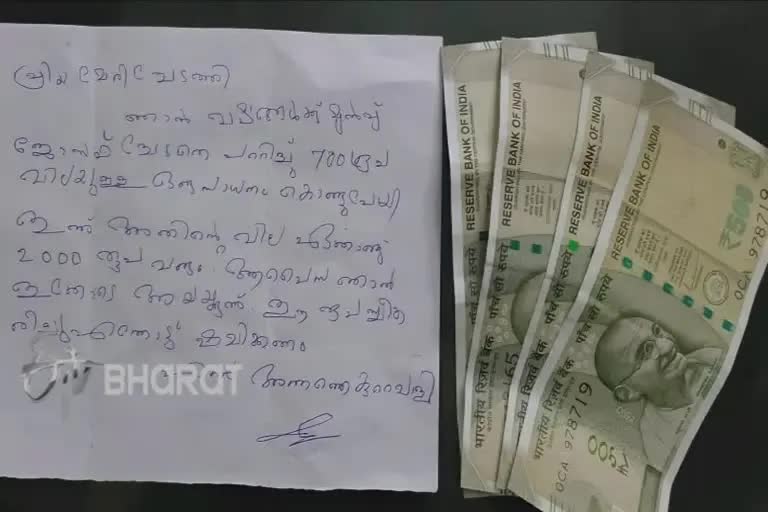 പ്രിയ മേരി ചേടത്തി
ഞാൻ വർഷങ്ങൾക്ക് മുൻപ്
ജോസഫ് ചേട്ടനെ പറ്റിച്ച് 700 രൂപ
വിലയുള്ള ഒരു സാധനം കൊണ്ടുപോയി
ഇന്ന് അതിന്റെ വില ഏതാണ്ട്
2000 രൂപ വരും. ആ പൈസ ഞാൻ
ഇതോടെ അയക്കുന്നു. ഈ
എന്നോട് ക്ഷമിക്കണം
BHARAT
RESERVE BANK OF INDIA
RESERVE BANK OF INDIA
RESERVE BANK OF INDIA
RESERVE BANK OF INDIA
भारतीय रिज़र्व बैंक पाँच सौ रुपये
भारतीय रिज़र्व बैंक पाँच सौ रुपये
पाँच सौ रुपये
₹500
0CA 978719
0CA 978719
500